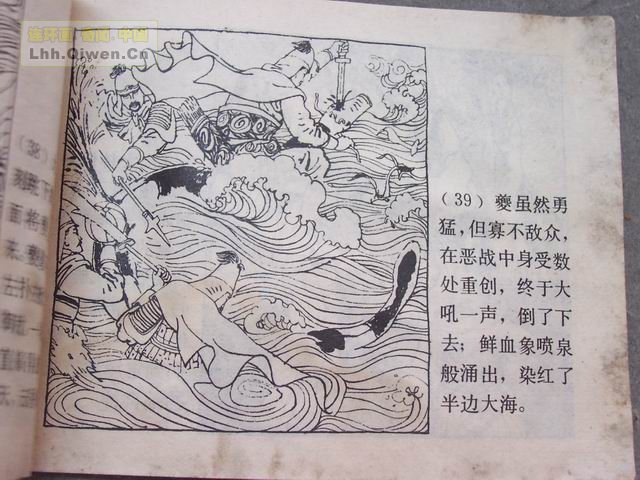 连环画 奇闻.中国
Lhh.Qiwen.Cn
(38)
面将
来
(39) 夔虽然勇
猛，但寡不敌众，
在恶战中身受数
处重创，终于大
吼一声，倒了下
去；鲜血象喷泉
般涌出，染红了
半边大海。